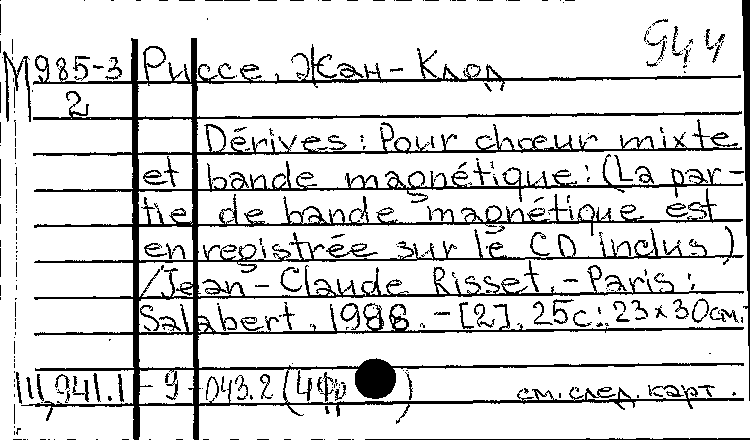 944
М985-3 Риссе, Жан-Клод
2
Dérives: Pour chœur mixte
et bande magnétique: (La par-
tie de bande magnétique est
enregistrée sur le CD inclus)
/Jean-Claude Risset.-Paris:
Salabert, 1988.-[2], 25с.; 23x30см.-
Щ941.1-9-043.2(4Фр)
см. след. карт.